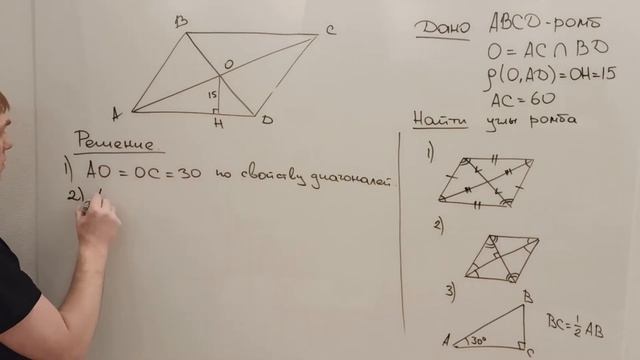 B
C
O
15
A
H
D
Дано ABCD-ромб
O = AC ∩ BD
ρ(O, AD) = OH = 15
AC = 60
Найти углы ромба
Решение
1) AO = OC = 30 по свойству диагоналей.
2)
1)
2)
3)
B
A
30°
C
BC = ½ AB